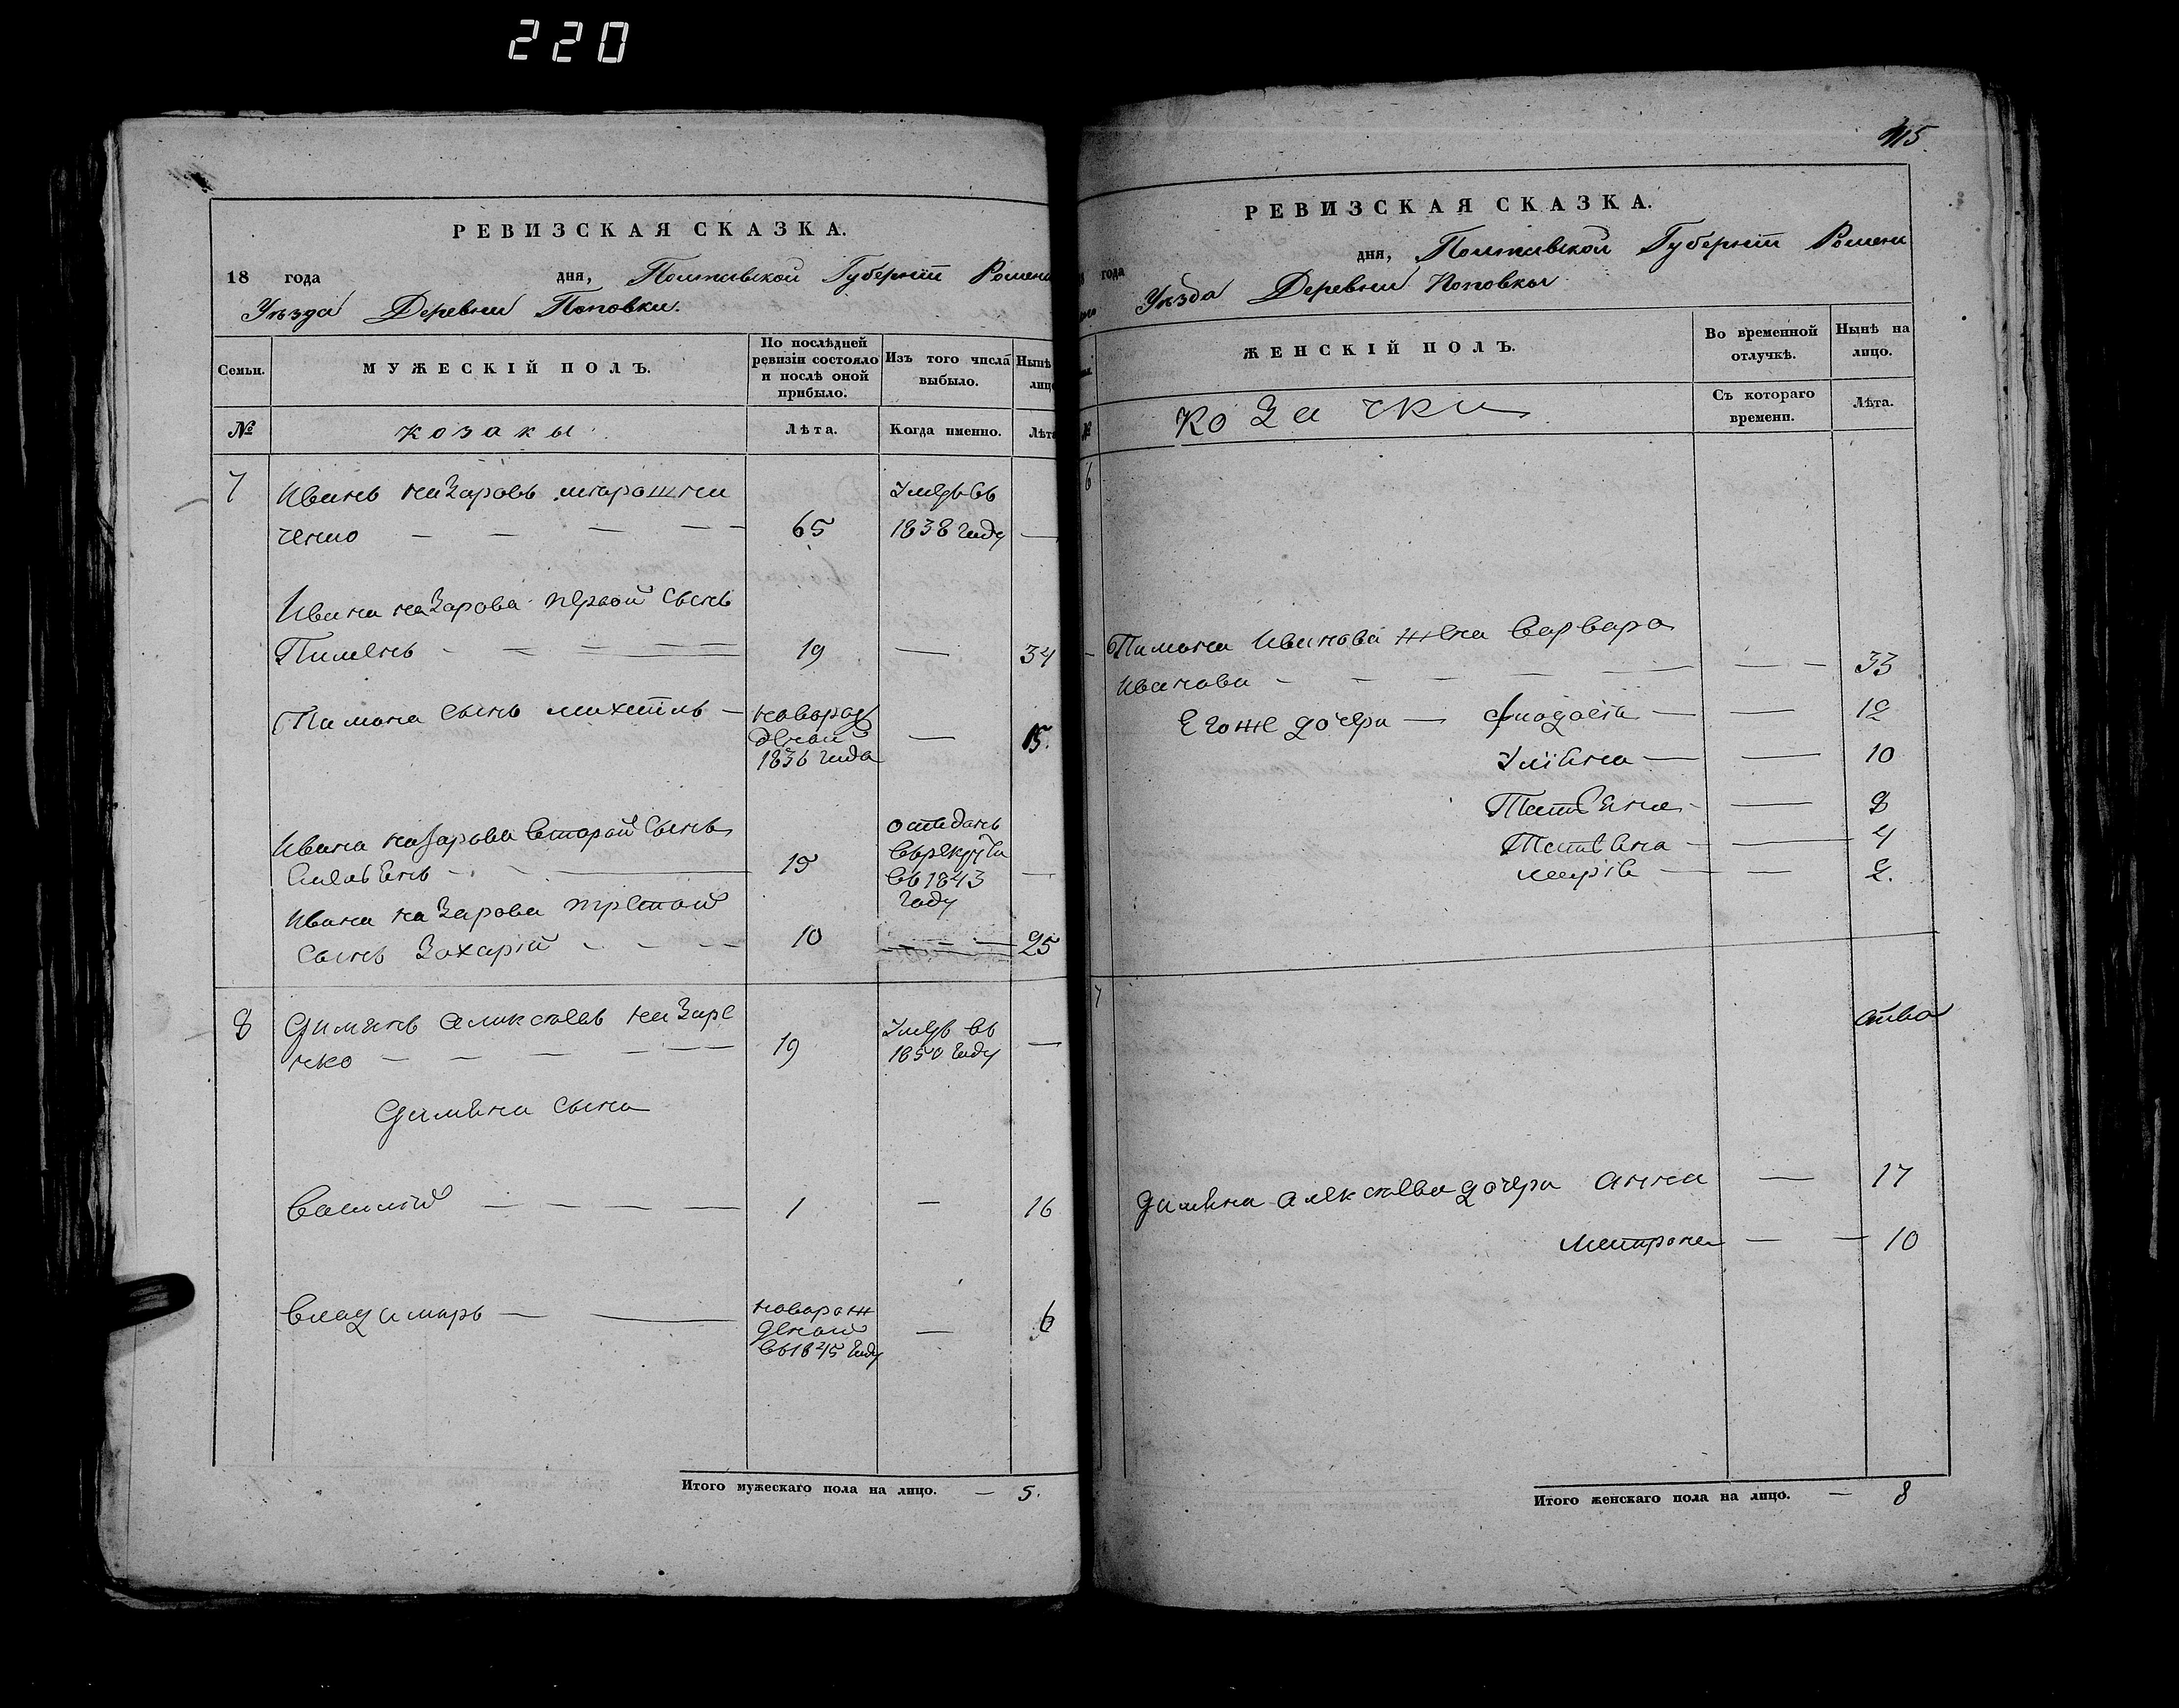 220
РЕВИЗСКАЯ СКАЗКА.
18 года дня, Полтавской Губерніи Ромен
Уѣзда Деревни Поповки.
Семьи.
МУЖЕСКІЙ ПОЛЪ.
По послѣдней ревизіи состояло и послѣ оной прибыло.
Изъ того числа выбыло.
Нынѣ
лице
№
козаки
Лѣта.
Когда именно.
Лѣта
7 Иванъ Назаровъ
ченко 65 Умеръ въ 1838 году —
Ивана Назарова первой сынъ
Пименъ 19 — 34
Пимона сынъ Михаилъ — новорож
деной
1836 года — 15.
Ивана Назарова второй сынъ
15 отъданъ
въ рекруты
въ 1843
году —
Ивана Назарова третой
сынъ Захарій 10 — 25
8 Димянъ Алексѣевъ Назаре
нко 19 Умеръ въ
1850 году —
Димяна сына
Василій 1 — 16
Владимиръ — новорож
деной
въ 1845 году — 6
Итого мужескаго пола на лицо. — 5.
115
РЕВИЗСКАЯ СКАЗКА.
года дня, Полтавской Губерніи Ромен
Уѣзда Деревни Поповки
№
ЖЕНСКІЙ ПОЛЪ.
Во временной отлучкѣ.
Нынѣ на лицо.
Козачки
Съ котораго времени.
Лѣта.
6
Пимона Иванова жена Варвара
Иванова — — 33
Егоже дочери — Фиодосія — — 12
Уліяна — — 10
Татіяна — 8
Татіяна — 4
Марія — — 2.
7
Димяна Алексѣева дочери Анна — 17
Матрона — — 10
Итого женскаго пола на лицо. — 8